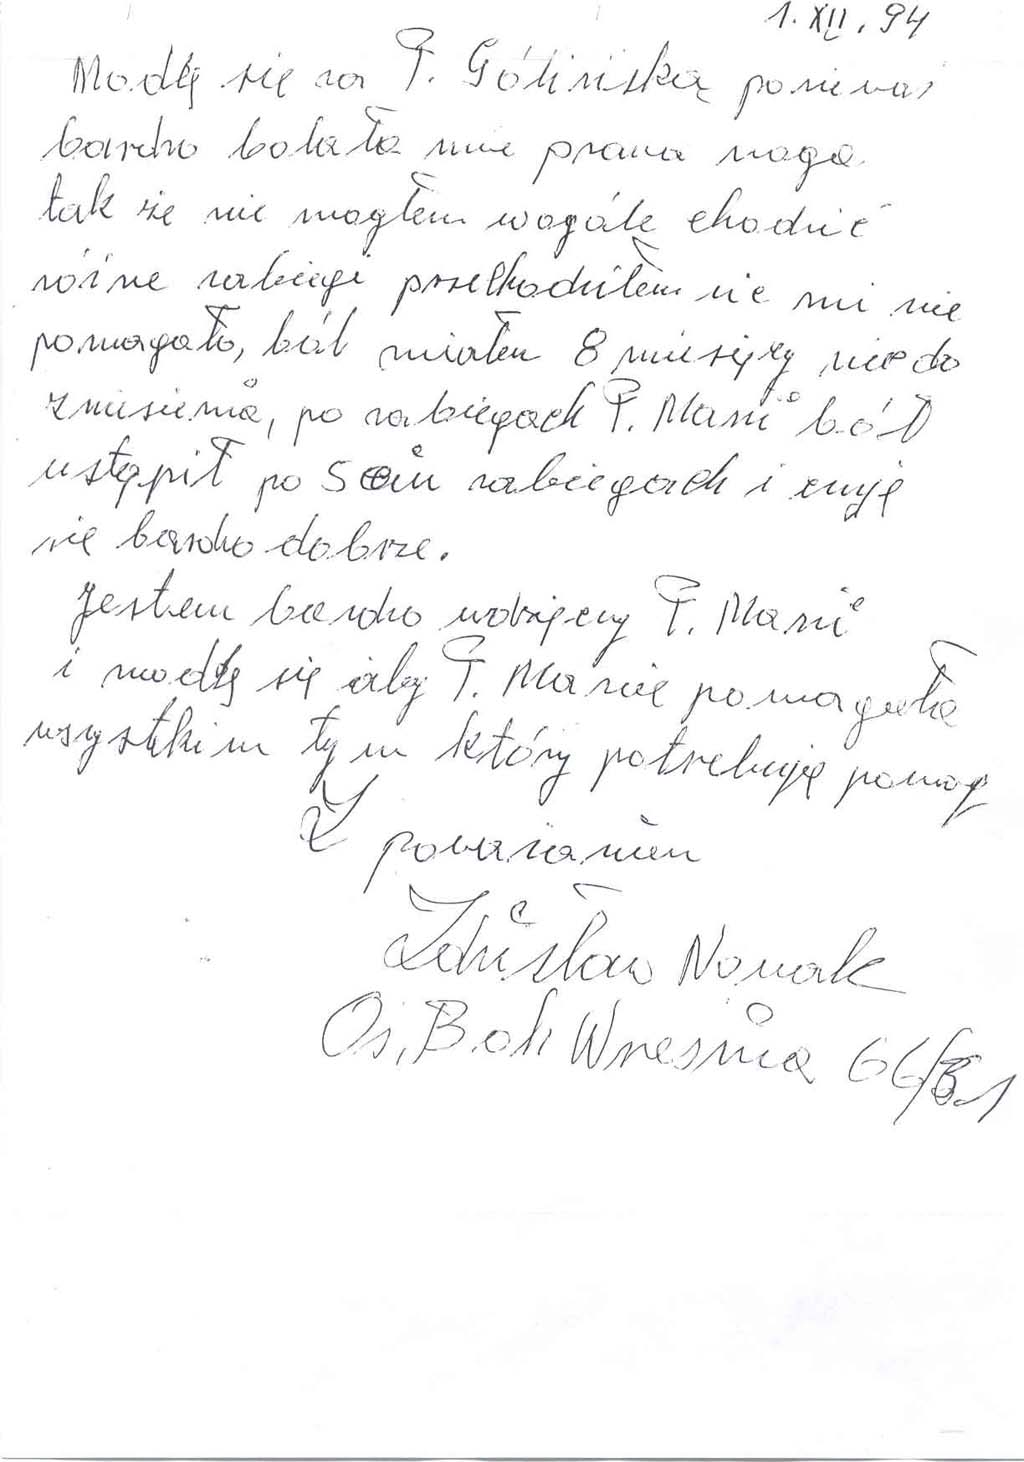 1.XII.94
Modlę się za P. Gólińską ponieważ
bardzo bolała mnie prawa noga
tak że nie mogłem wogóle chodzić
różne zabiegi przechodziłem nic mi nie
pomagało, ból miałem 8 miesięcy nie do
zniesienia, po zabiegach P. Marii ból
ustąpił po 5ciu zabiegach i czuję
się bardzo dobrze.
Jestem bardzo wdzięczny P. Marii
i modlę się aby P. Maria pomagała
wszystkim tym który potrzebuję pomocy
Z poważaniem
Zdzisław Nowak
Os. Boh Września